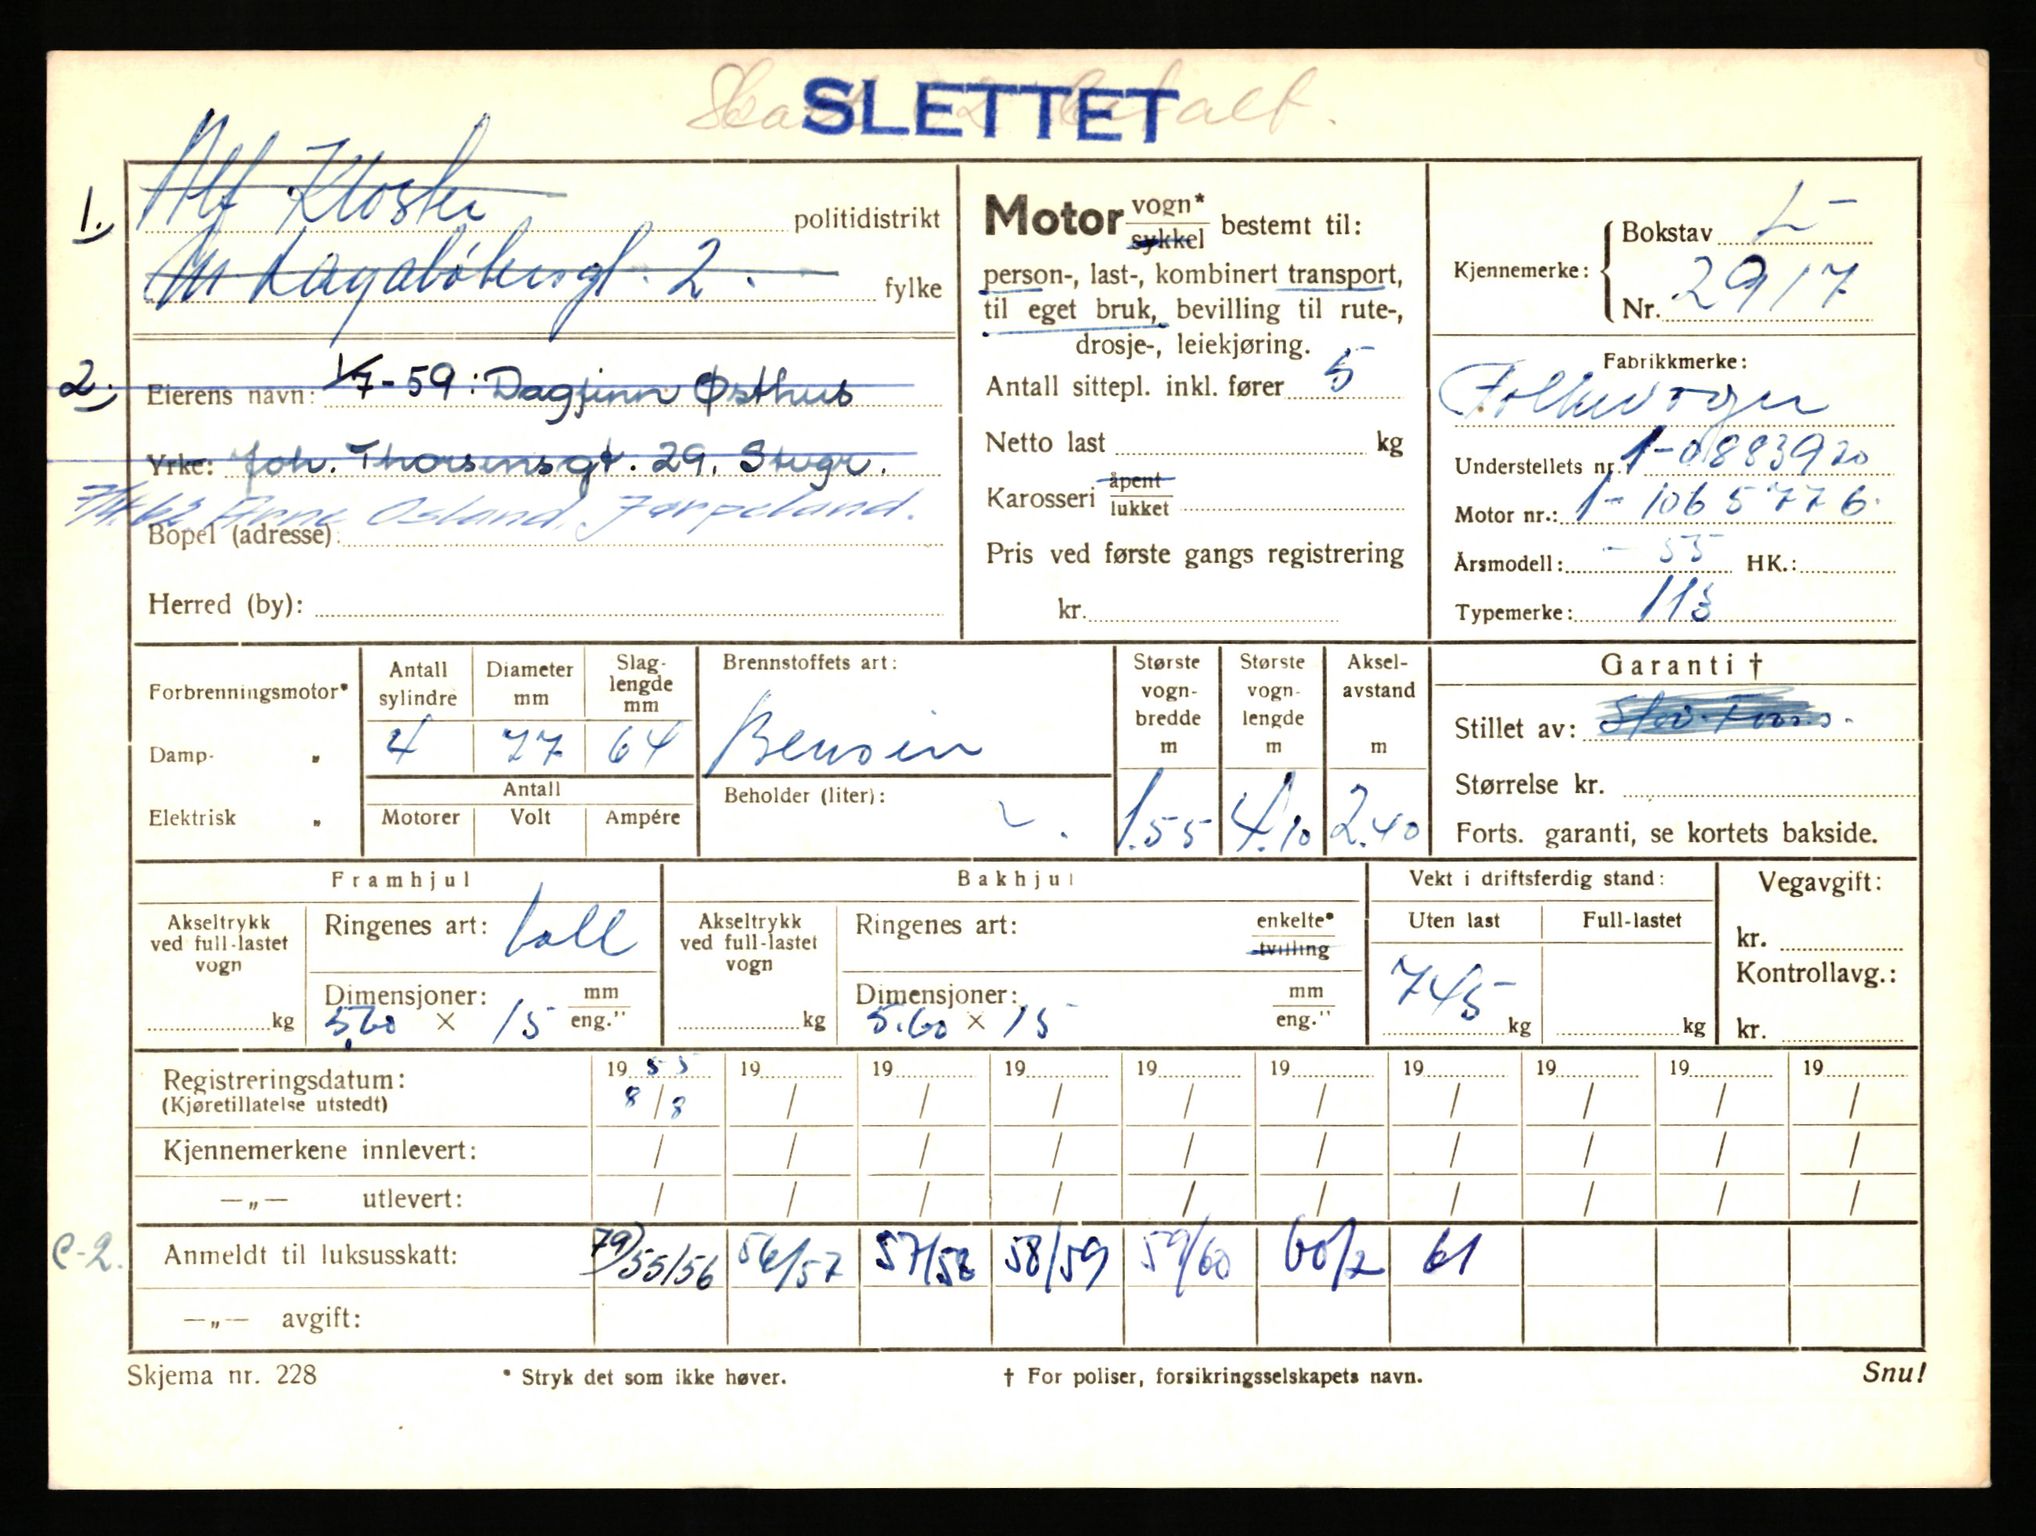 SLETTET
Skatt betalt.
1. Alf Kloster politidistrikt
2. fylke
2. Eierens navn: 1/7-59: Dagfinn Østhus
Yrke: Joh. Thorsensgt. 29. Stvgr.
Arne Osland, Jørpeland.
Bopel (adresse):
Herred (by):
Motor vogn* sykkel bestemt til:
person-, last-, kombinert transport,
til eget bruk, bevilling til rute-,
drosje-, leiekjøring.
Antall sittepl. inkl. fører 5
Netto last kg
Karosseri åpent lukket
Pris ved første gangs registrering
kr.
Kjennemerke: Bokstav L-
Nr. 2917
Fabrikkmerke:
Folkevogn
Understellets nr. 1-0883920
Motor nr.: 1-1065776.
Årsmodell: -55 HK.:
Typemerke: 113
Forbrenningsmotor*
Damp- "
Elektrisk "
Antall sylindre 4
Diameter mm 77
Slag-lengde mm 64
Antall
Motorer Volt Ampére
Brennstoffets art:
Bensin
Beholder (liter):
Største vogn-bredde m 1.55
Største vogn-lengde m 4.10
Aksel-avstand m 2.40
Garanti †
Stillet av:
Størrelse kr.
Forts. garanti, se kortets bakside.
Framhjul
Akseltrykk ved full-lastet vogn kg
Ringenes art: ball
Dimensjoner: mm eng."
5.60 × 15
Bakhjul
Akseltrykk ved full-lastet vogn kg
Ringenes art: enkelte* tvilling
Dimensjoner: mm eng."
5.60 × 15
Vekt i driftsferdig stand:
Uten last Full-lastet
745 kg kg
Vegavgift:
kr.
Kontrollavg.:
kr.
Registreringsdatum: 1955 19 19 19 19 19 19 19 19 19
(Kjøretillatelse utstedt) 8/8 / / / / / / / / /
Kjennemerkene innlevert: / / / / / / / / / /
—„— utlevert: / / / / / / / / / /
C-2. Anmeldt til luksusskatt: 79/55/56 56/57 57/58 58/59 59/60 60/2 61
—„— avgift:
Skjema nr. 228 * Stryk det som ikke høver. † For poliser, forsikringsselskapets navn. Snu!